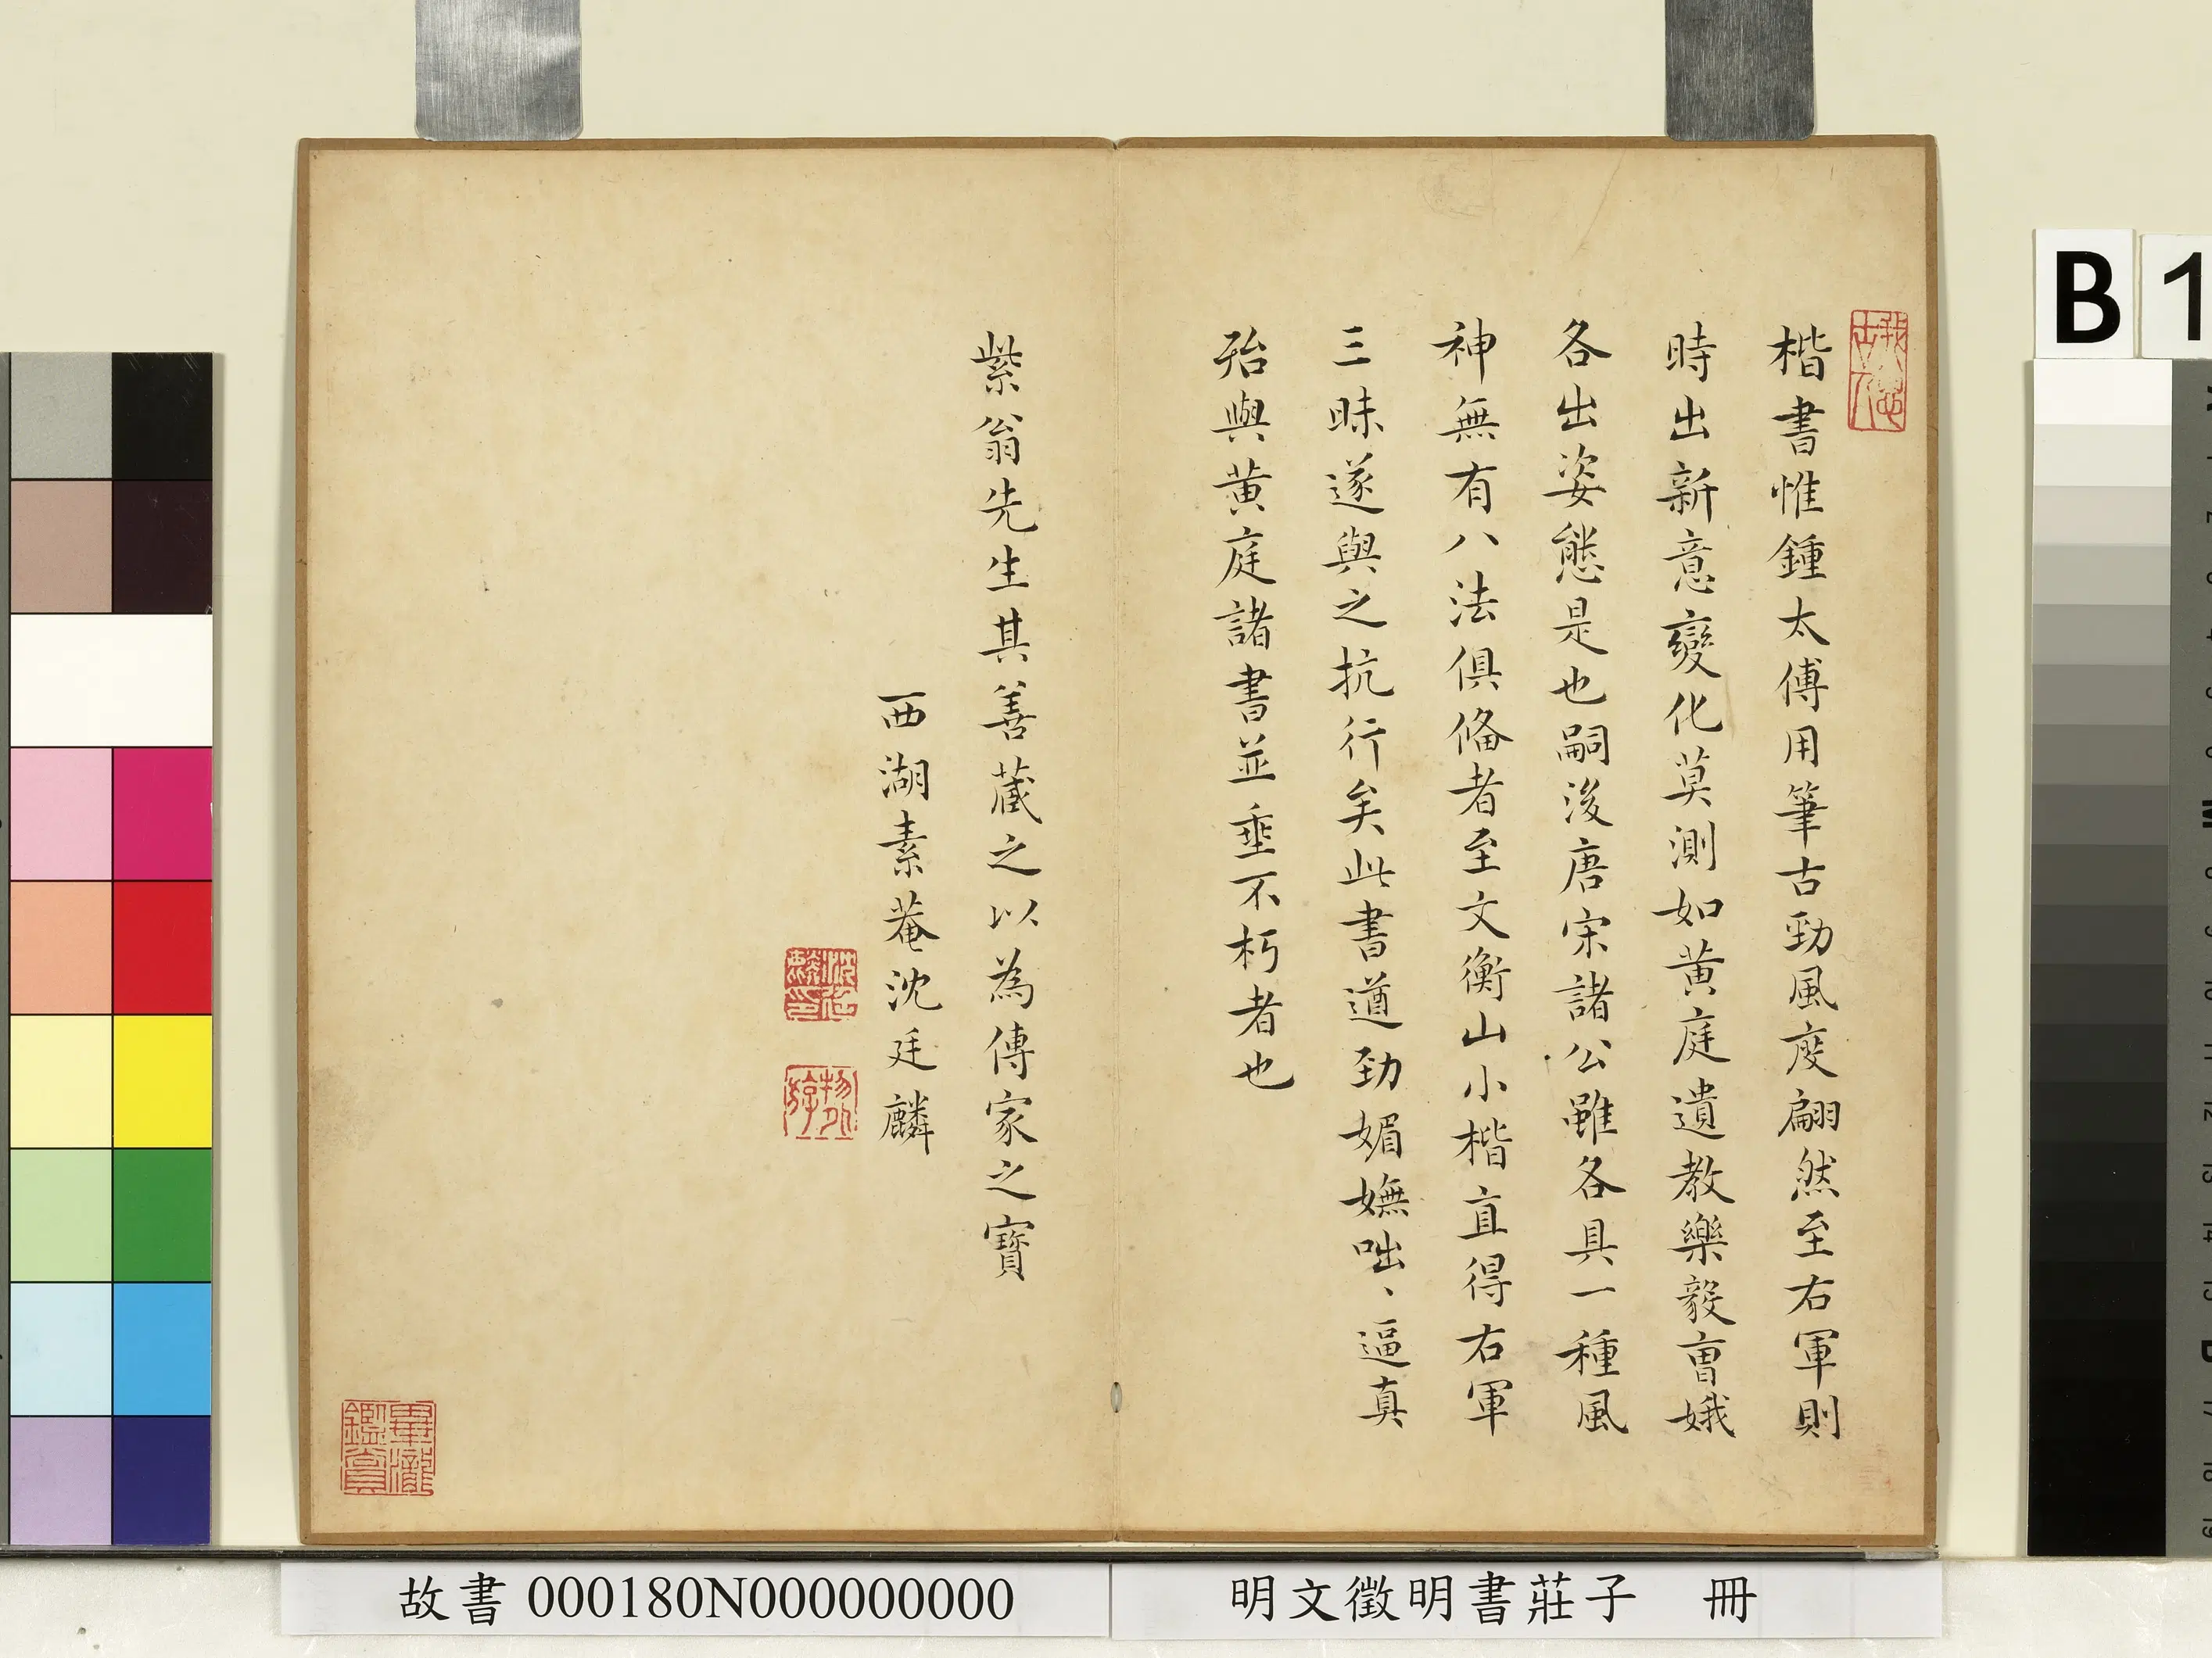 楷書惟鍾太傅用筆古勁風度翩然至右軍則
時出新意變化莫測如黃庭遺教樂毅曺娥
各出姿態是也嗣後唐宋諸公雖各具一種風
神無有八法俱俻者至文衡山小楷直得右軍
三昧遂與之抗行矣此書遒勁媚嫵咄、逼真
殆與黃庭諸書並垂不朽者也
紫翁先生其善藏之以為傳家之寶
西湖素菴沈廷麟
我思古人
沈廷麟印
畢瀧鑑賞
故書 000180N000000000
明文徵明書莊子 冊
B 1